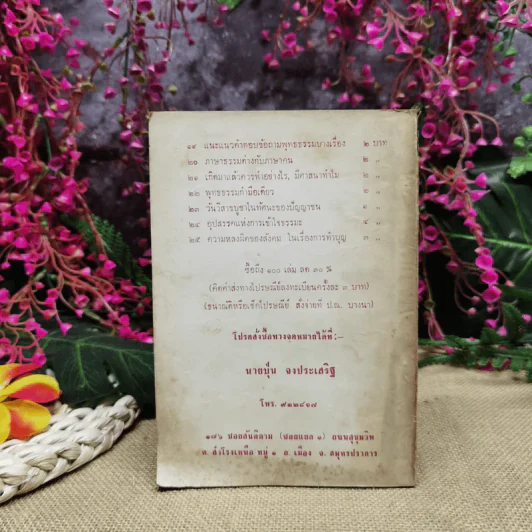 ๑๙ แนะแนวคำตอบข้อถามพุทธธรรมบางเรื่อง ๒ บาท
๒๐ ภาษาธรรมต่างกับภาษาคน ๒ "
๒๑ เกิดมาแล้วควรทำอย่างไร, มีศาสนาทำไม ๒ "
๒๒ พุทธธรรมกำมือเดียว ๒ "
๒๓ วันวิสาขบูชาในทัศนะของปัญญาชน ๑ "
๒๔ อุปสรรคแห่งการเข้าใจธรรมะ ๔ "
๒๕ ความหลงผิดของสังคม ในเรื่องการทำบุญ ๓ "
ซื้อถึง ๑๐๐ เล่ม ลด ๓๐ %
(คิดค่าส่งทางไปรษณีย์ลงทะเบียนครั้งละ ๓ บาท)
(ธนาณัติหรือเช็คไปรษณีย์ สั่งจ่ายที่ ป.ณ. บางนา)
โปรดสั่งซื้อทางจดหมายได้ที่:—
นายปุ่น จงประเสริฐ
โทร. ๙๑๒๔๖๗
๑๗๖ ซอยสันติคาม (ซอยแยก ๑) ถนนสุขุมวิท
ต. สำโรงเหนือ หมู่ ๑ อ. เมือง จ. สมุทรปราการ